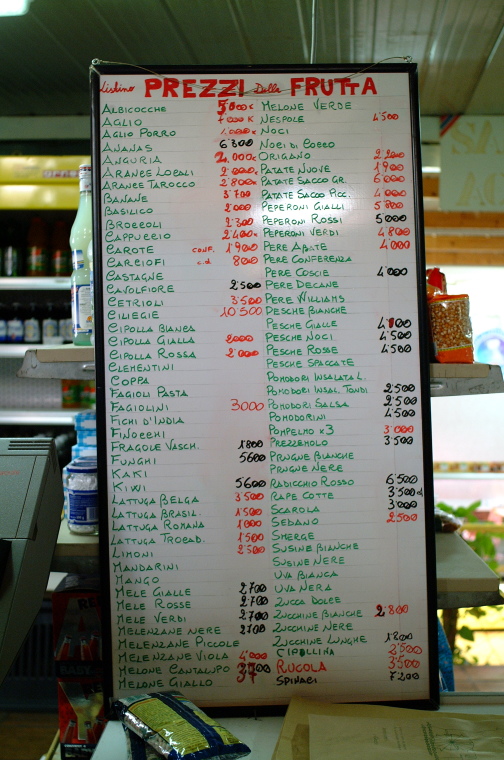 Listino PREZZI Della FRUTTA
ALBICOCCHE 5000K
AGLIO 7000K
AGLIO PORRO 4.000K
ANANAS 6300
ANGURIA 2.000K
ARANCE LOCALI 2000K
ARANCE TAROCCO 2'800K
BANANE 3'700
BASILICO 2'000
BROCCOLI 2'300
CAPPUCCIO 2'400K
CAROTE CONF. 1'900
CARCIOFI c.d. 800
CASTAGNE
CAVOLFIORE 2'500
CETRIOLI 3'500
CILIEGIE 10'500
CIPOLLA BIANCA
CIPOLLA GIALLA 2000
CIPOLLA ROSSA 2'000
CLEMENTINI
COPPA
FAGIOLI PASTA
FAGIOLINI 3000
FICHI D'INDIA
FINOCCHI
FRAGOLE VASCH. 1800
FUNGHI 5600
KAKI
KIWI 5600
LATTUGA BELGA 3'500
LATTUGA BRASIL. 1'500
LATTUGA ROMANA 1'000
LATTUGA TROCAD. 1'500
LIMONI 2'500
MANDARINI
MANGO
MELE GIALLE 2'700
MELE ROSSE 2'700
MELE VERDI 2'700
MELENZANE NERE 2700
MELENZANE PICCOLE
MELENZANE VIOLA 4'000
MELONE CANTALUPO 3700
MELONE GIALLO
MELONE VERDE
NESPOLE 4'500
NOCI
NOCI DI COCCO
ORIGANO 2'200
PATATE NUOVE 1'900
PATATE SACCO GR. 6'000
PATATE SACCO PICC. 4'000
PEPERONI GIALLI 5'800
PEPERONI ROSSI 5'000
PEPERONI VERDI 4'800
PERE ABATE 4'000
PERE CONFERENZA
PERE COSCIE 4'000
PERE DECANE
PERE WILLIAMS
PESCHE BIANCHE
PESCHE GIALLE 4'100
PESCHE NOCI 4'500
PESCHE ROSSE 4'500
PESCHE SPACCATE
POMODORI INSALATA L.
POMODORI INSAL. TONDI 2'500
POMODORI SALSA 2'500
POMODORINI 4'500
POMPELMO x3 3'000
PREZZEMOLO 3'500
PRUGNE BIANCHE
PRUGNE NERE
RADICCHIO ROSSO 6'500
RAPE COTTE 3'500
SCAROLA 3'000
SEDANO 2'500
SMERGE
SUSINE BIANCHE
SUSINE NERE
UVA BIANCA
UVA NERA
ZUCCA DOLCE
ZUCCHINE BIANCHE 2'800
ZUCCHINE NERE
ZUCCHINE LUNGHE 1'800
CIPOLLINA 3'500
RUCOLA 3'500
SPINACI 7'200